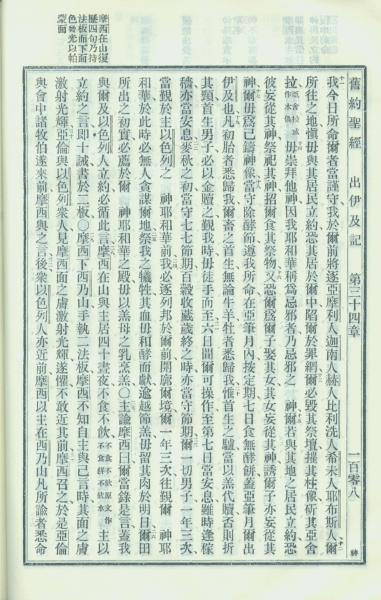 舊約聖經 出伊及記 第三十四章 一百零八
我今日所命爾者當謹守我於爾前將逐亞摩利人迦南人赫人比利洗人希未人耶布斯人爾
所往之地愼毋與其居民立約恐其居於爾中陷爾於罪網爾必毀其祭壇擣其柱像斫其亞舍
拉毋崇拜他神因我耶和華稱爲忌邪者乃忌邪之 神爾若與其地之居民立約恐
彼妄從其神祭祀其神招爾食其祭物又恐爾爲爾子娶其女其女妄從其神誘爾子亦妄從其
神爾毋爲己鑄神像當守除酵節遵我所命在亞筆月內按定期七日食無酵餅蓋亞筆月爾出
伊及也凡初胎者悉歸我爾畜之首生無論牛羊牡者悉歸我惟首生之驢當以羔代贖否則折
其頸首生男子必以金贖之覲我時毋徒手而至六日間爾可操作至第七日當安息雖時逢稼
穡亦當安息麥秋之初當守七七節期百穀收藏歲終之時亦當守節期爾一切男子一年三次
當覲於主以色列之 神耶和華前我必逐列邦於爾前開廓爾境爾一年三次往覲爾 神耶
和華於此時必無人貪謀爾地祭我之犧牲其血毋和酵而獻逾越節羔毋留其肉於明日爾田
所出之初實必薦於爾 神耶和華之殿毋以羔母之乳烹羔○主諭摩西曰爾當錄是言蓋我
與爾及以色列人立約必循此言摩西在山與主居四十晝夜不食不飲食不飲原文作不食餅不飲水主以
立約之言卽十誡書於二板○摩西下西乃山手執二法板摩西不知自主與己言時其面之膚
激射光輝亞倫與以色列衆人見摩西面之膚激射光輝遂懼不敢近其前摩西召之於是亞倫
與會中諸牧伯遂來前摩西與之言後衆以色列人亦近前摩西以主在西乃山凡所諭者悉命
摩西在山復
歷四旬乃持
法板而下面
色發光以帕
蒙面